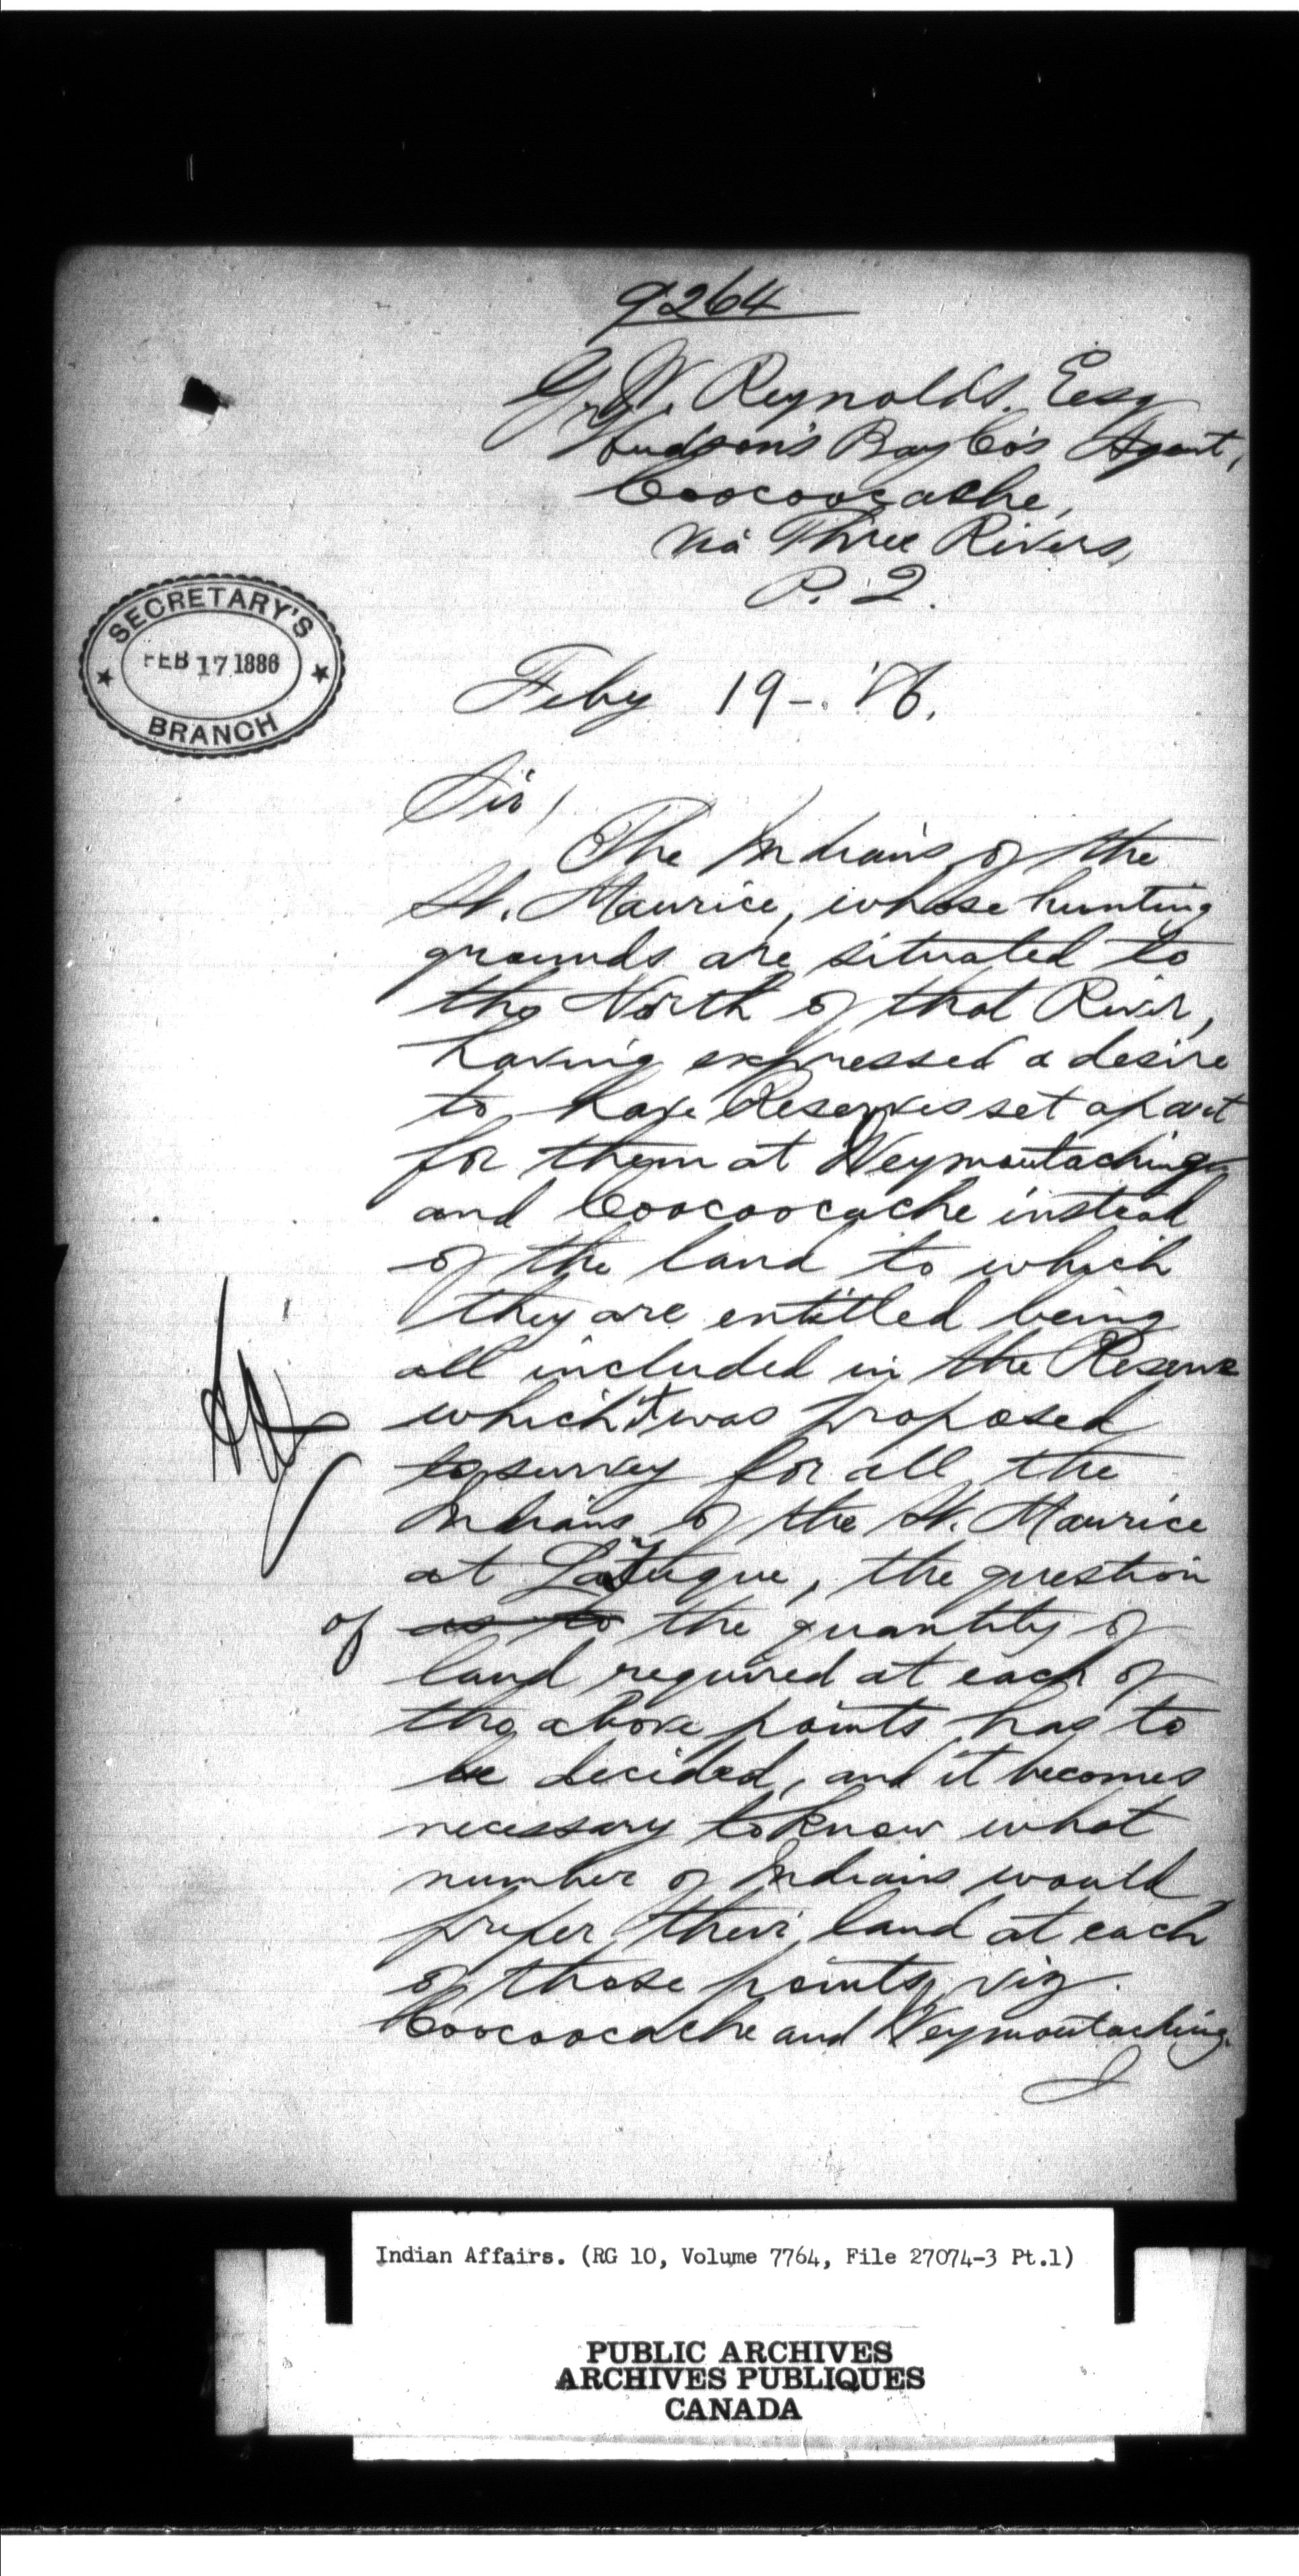 9264
G. W. Reynolds, Esq
Hudson's Bay Co's Agent,
Coocoocache,
via Three Rivers,
P. Q.
SECRETARY'S
FEB 17 1886
BRANCH
Feby 19 - '86.
Sir,
The Indians of the
St. Maurice, whose hunting
grounds are situated to
the North of that River,
having expressed a desire
to have Reserves set apart
for them at Weymontaching
and Coocoocache instead
of the land to which
they are entitled being
all included in the Reserve
which it was proposed
to survey for all the
Indians of the St. Maurice
at La Tuque, the question
of as to the quantity of
land required at each of
the above points has to
be decided, and it becomes
necessary to know what
number of Indians would
prefer their land at each
of those points, viz.
Coocoocache and Weymontaching.
I
Indian Affairs. (RG 10, Volume 7764, File 27074-3 Pt.1)
PUBLIC ARCHIVES
ARCHIVES PUBLIQUES
CANADA